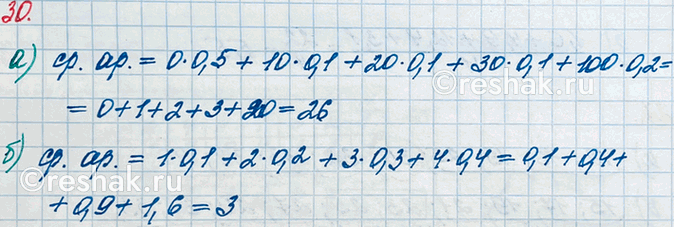 30.
а) ср. ар. = 0·0,5 + 10·0,1 + 20·0,1 + 30·0,1 + 100·0,2 =
= 0+1+2+3+20 = 26
б) ср. ар. = 1·0,1 + 2·0,2 + 3·0,3 + 4·0,4 = 0,1 + 0,4 +
+ 0,9 + 1,6 = 3
©reshak.ru
©reshak.ru